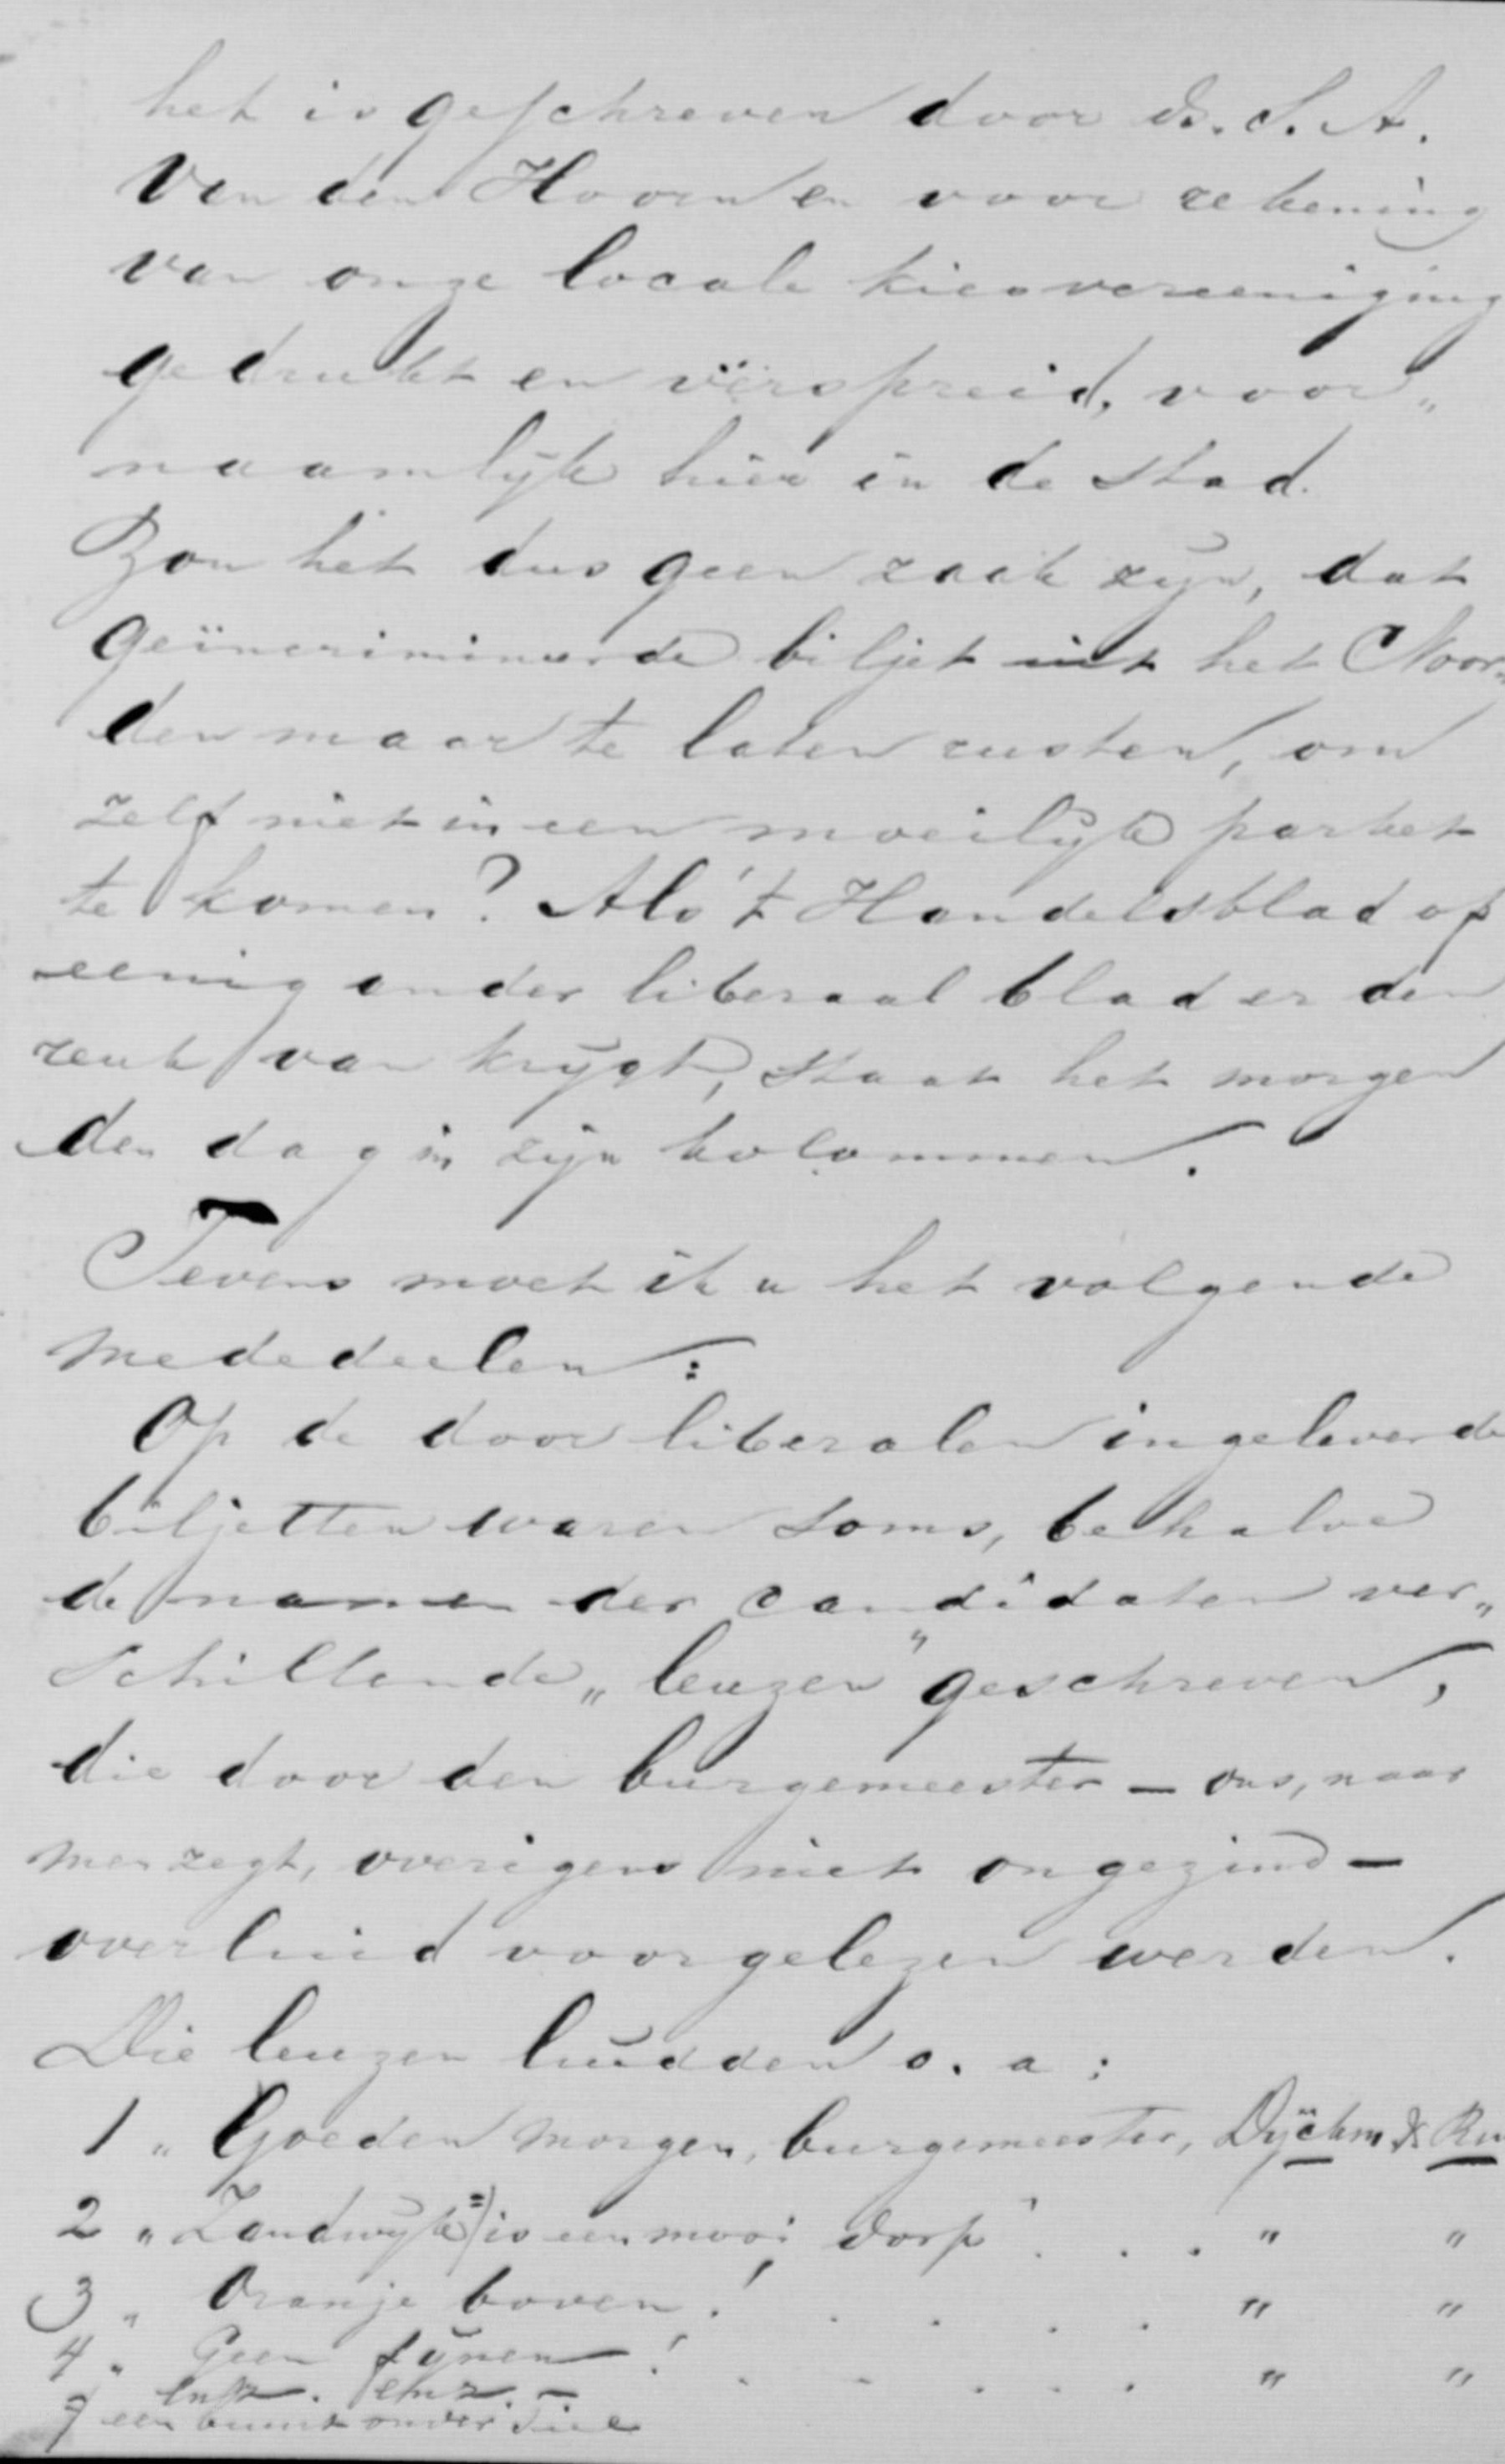 het is geschreven door ds. S. A.
Van den Hoorn en voor rekening
van onze locale kiesvereeniging
gedrukt en verspreid, voor„
naamlijk hier in de stad.
Zou het dus geen zaak zijn, dat
geïncrimineerde biljet uit het Noor„
den maar te laten rusten, om
zelf niet in een moeilijk parket
te komen? Als 't Handelsblad of
eenig ander liberaal blad er den
reuk van krijgt, staat het morgen
den dag in zijn kolommen.
Tevens moet ik u het volgende
mededeelen:
Op de door liberalen ingeleverde
biljetten waren soms, behalve
de namen der candidaten ver„
schillende „leuzen" geschreven,
die door den burgemeester — ons, naar
men zegt, overigens niet ongezind —
overluid voorgelezen werden.
Die leuzen luidden o. a:
1 „ Goeden morgen, burgemeester, Dÿckm &
2 „ Zandwijk =) is een mooi dorp' . . . " "
3 „ Oranje boven! . . . . " "
4 „ Geen fijnen! . . . . . " "
enz. enz. —
=) een buurt onder Tiel